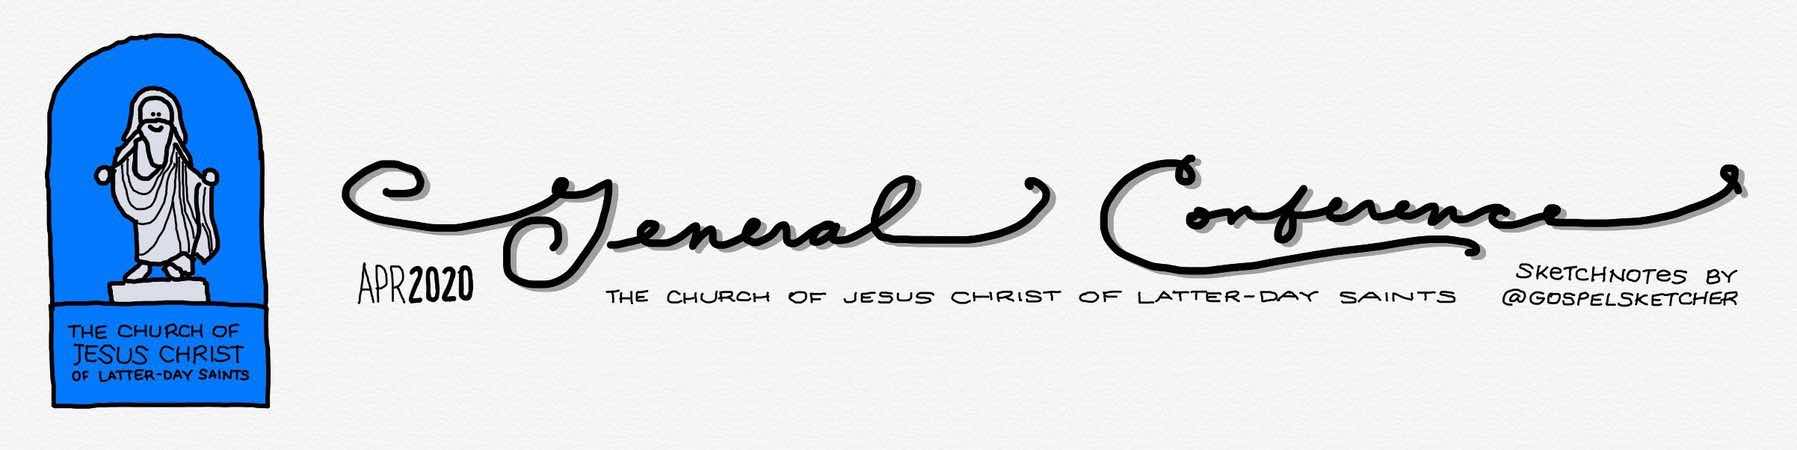 THE CHURCH OF
JESUS CHRIST
OF LATTER-DAY SAINTS
General Conference
APR2020
THE CHURCH OF JESUS CHRIST OF LATTER-DAY SAINTS
SKETCHNOTES BY
@GOSPELSKETCHER